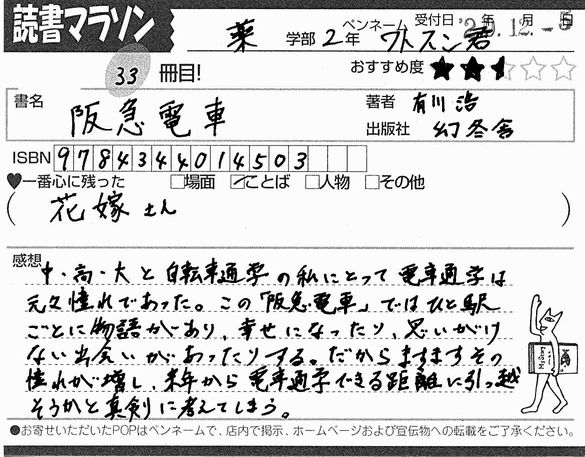 読書マラソン
33 冊目!
薬 学部 2年 ペンネーム ワトスン君
受付日 '20年12月-5日
おすすめ度 ★★☆☆
書名 阪急電車
著者 有川浩
出版社 幻冬舎
ISBN 9784344014503
♥一番心に残った □場面 ☑ことば □人物 □その他
( 花嫁さん )
感想
中・高・大と自転車通学の私にとって電車通学は
元々憧れであった。この「阪急電車」ではひと駅
ごとに物語があり、幸せになったり、思いがけ
ない出会いがあったりする。だからますますその
憧れが増し、来年から電車通学できる距離に引っ越
そうかと真剣に考えてしまう。
●お寄せいただいたPOPはペンネームで、店内で掲示、ホームページおよび宣伝物への転載をご了承ください。